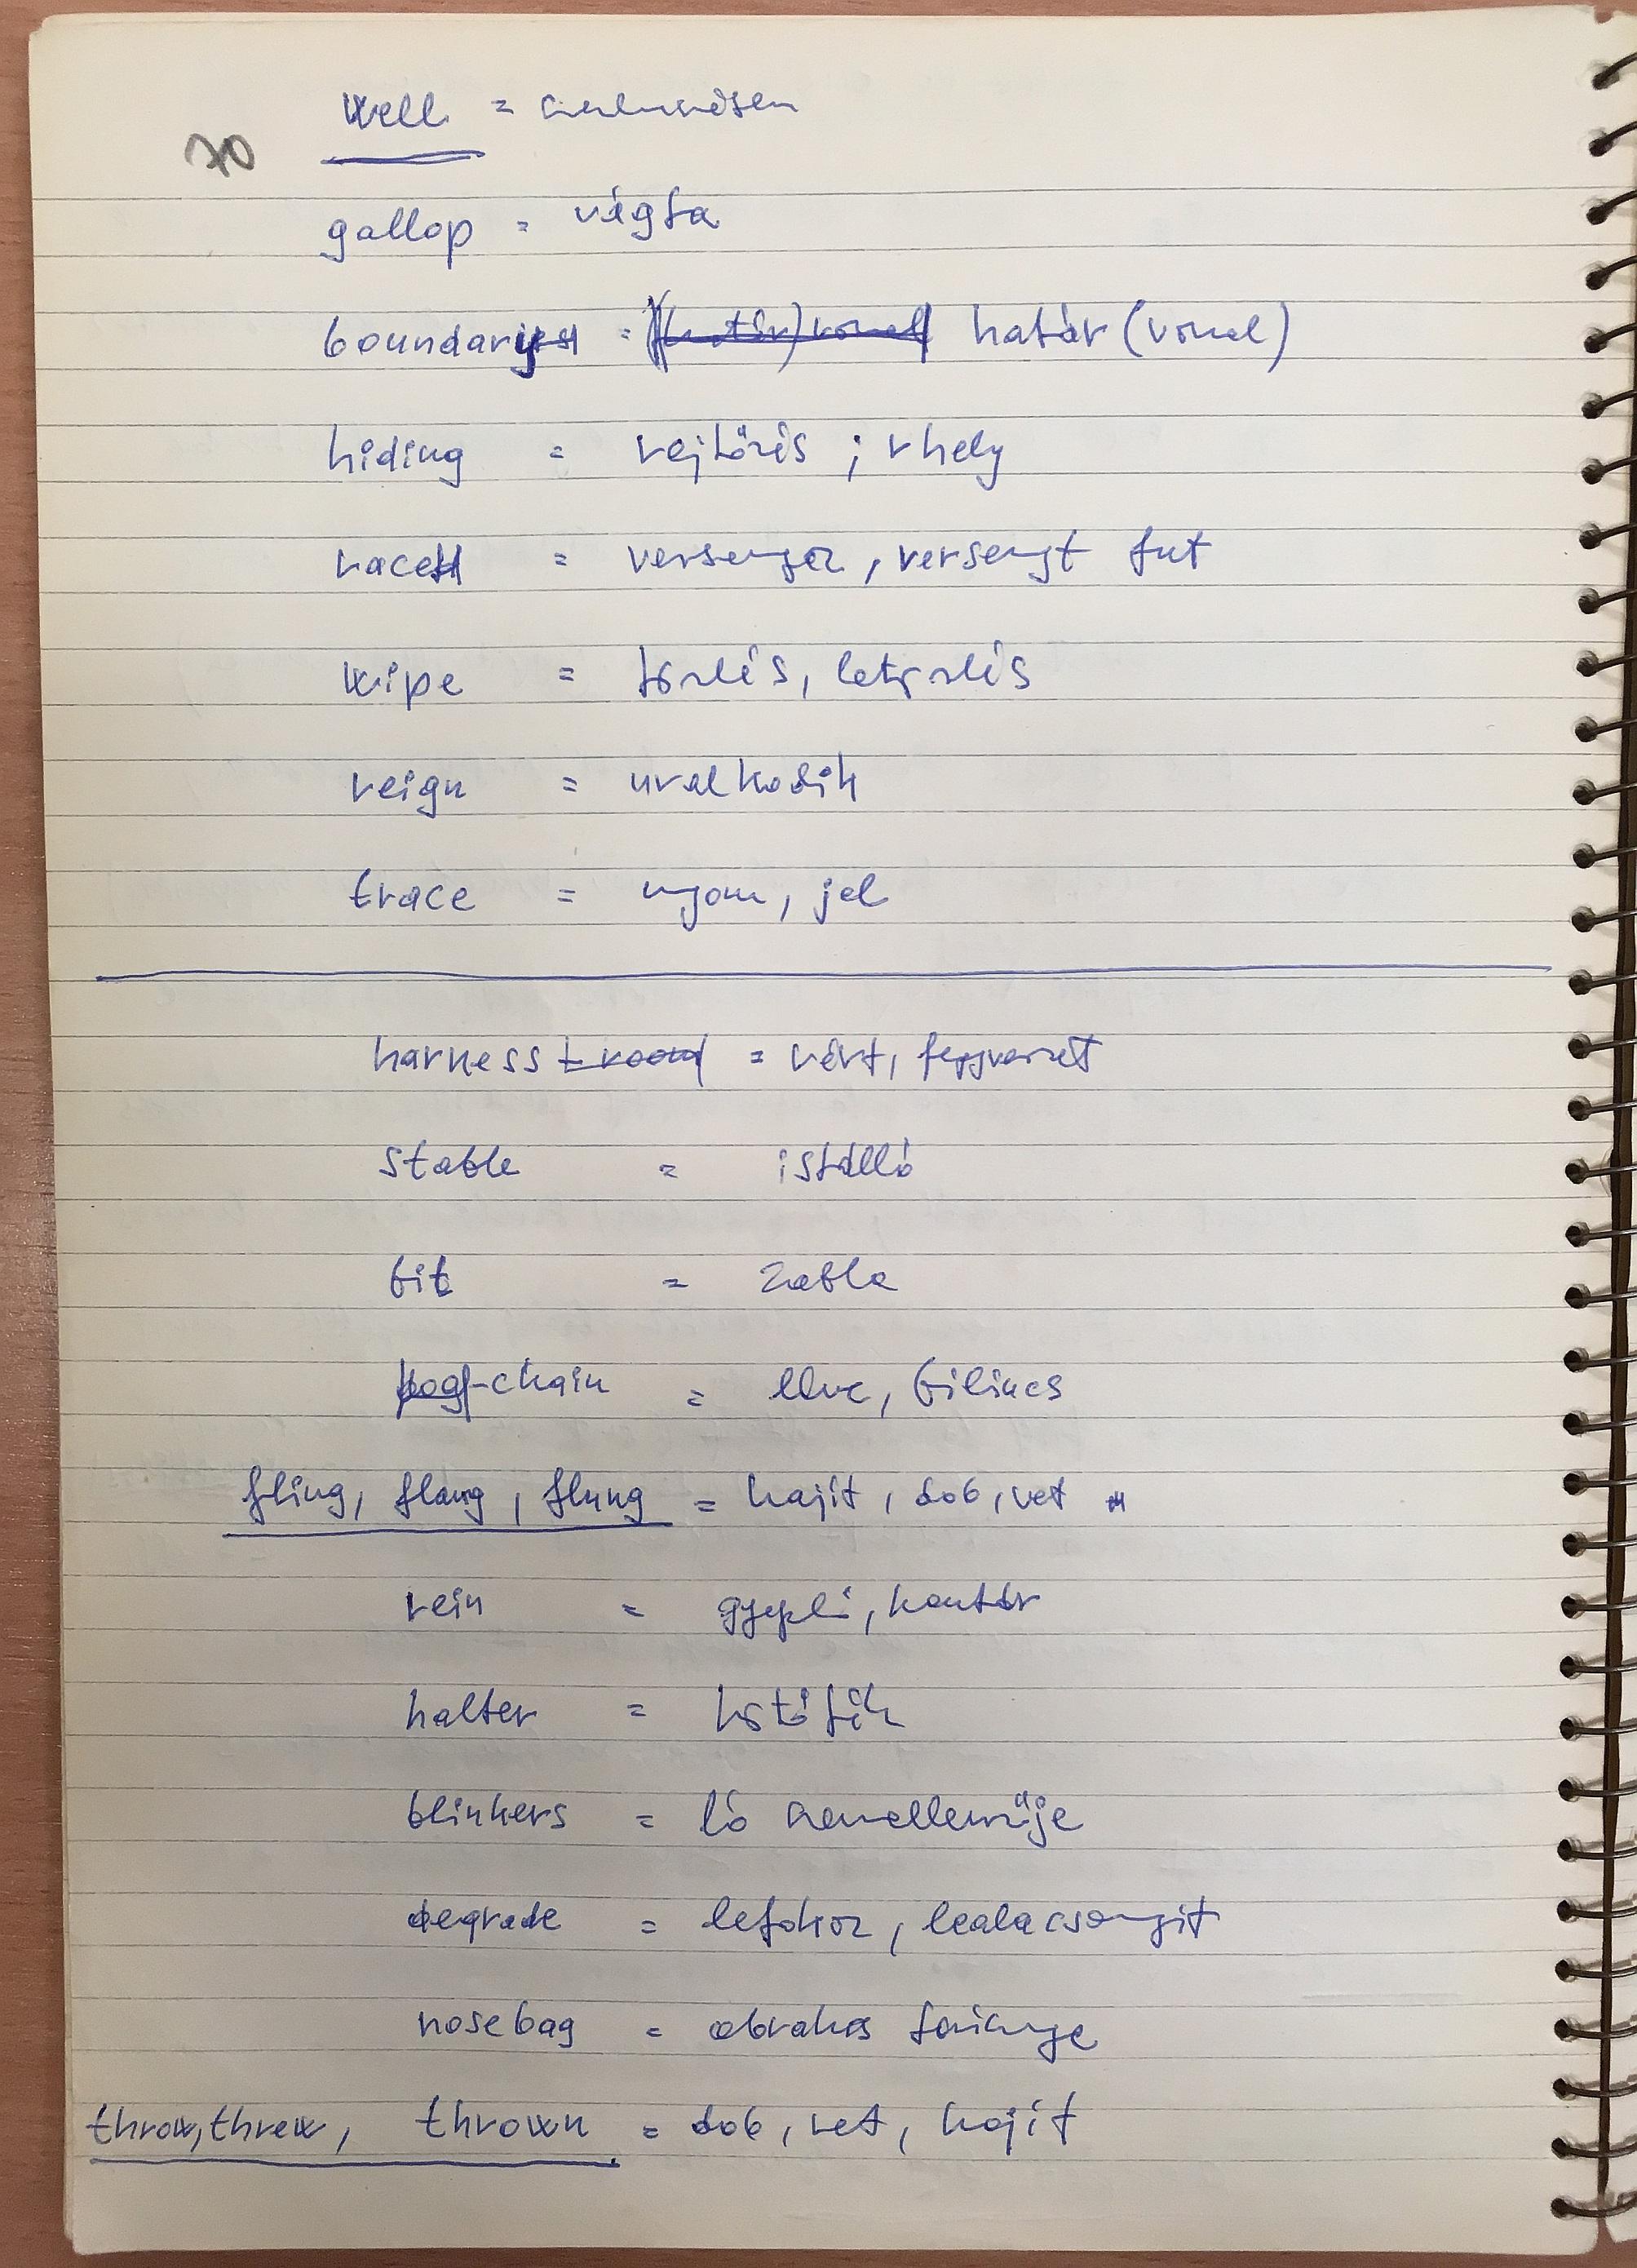 well =
70
gallop = vágta
boundary = határ (vonal)
hiding = rejtőzés ; rhely
race = versenyez, versenyt fut
wipe = törlés, letörlés
reign = uralkodik
trace = nyom, jel
harness = vért, fegyverzet
stable = istálló
bit = zabla
-chain = lánc, bilincs
fling, flang, flung = hajít, dob, vet
rein = gyeplő, kantár
halter = kötőfék
blinkers = ló szemellenzője
degrade = lefokoz, lealacsonyít
nosebag = abrakos tarisznya
throw, threw, thrown = dob, vet, hajít